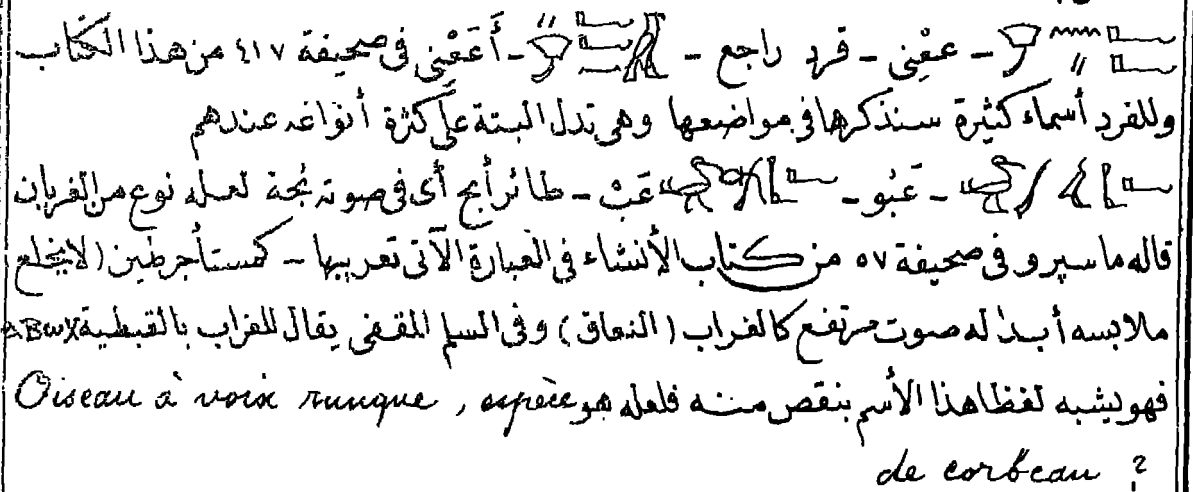 - عفِني - قرد راجع - - أَعَفْني في صحيفة ٤١٧ من هذا الكتاب
وللقرد أسماء كثيرة سنذكرها في مواضعها وهي تدل البتة على كثرة أنواعه عندهم
- عَبُو - عَبْ - طائر أبح أى في صوته بُحة لعله نوع من الغربان
قاله ماسپرو في صحيفة ٥٧ من كتاب الأنشاء في العبارة الآتى تعريبها - كمستأجر طين (لا يخلع
ملابسه أبدا له صوت مرتفع كالغراب (النعاق) وفى السلم المقفى يقال للغراب بالقبطية ⲁⲃⲱⲕ
فهو يشبه لفظا هذا الأسم بنقص منه فلعله هو Oiseau à voix runque, espèce
de corbeau ?